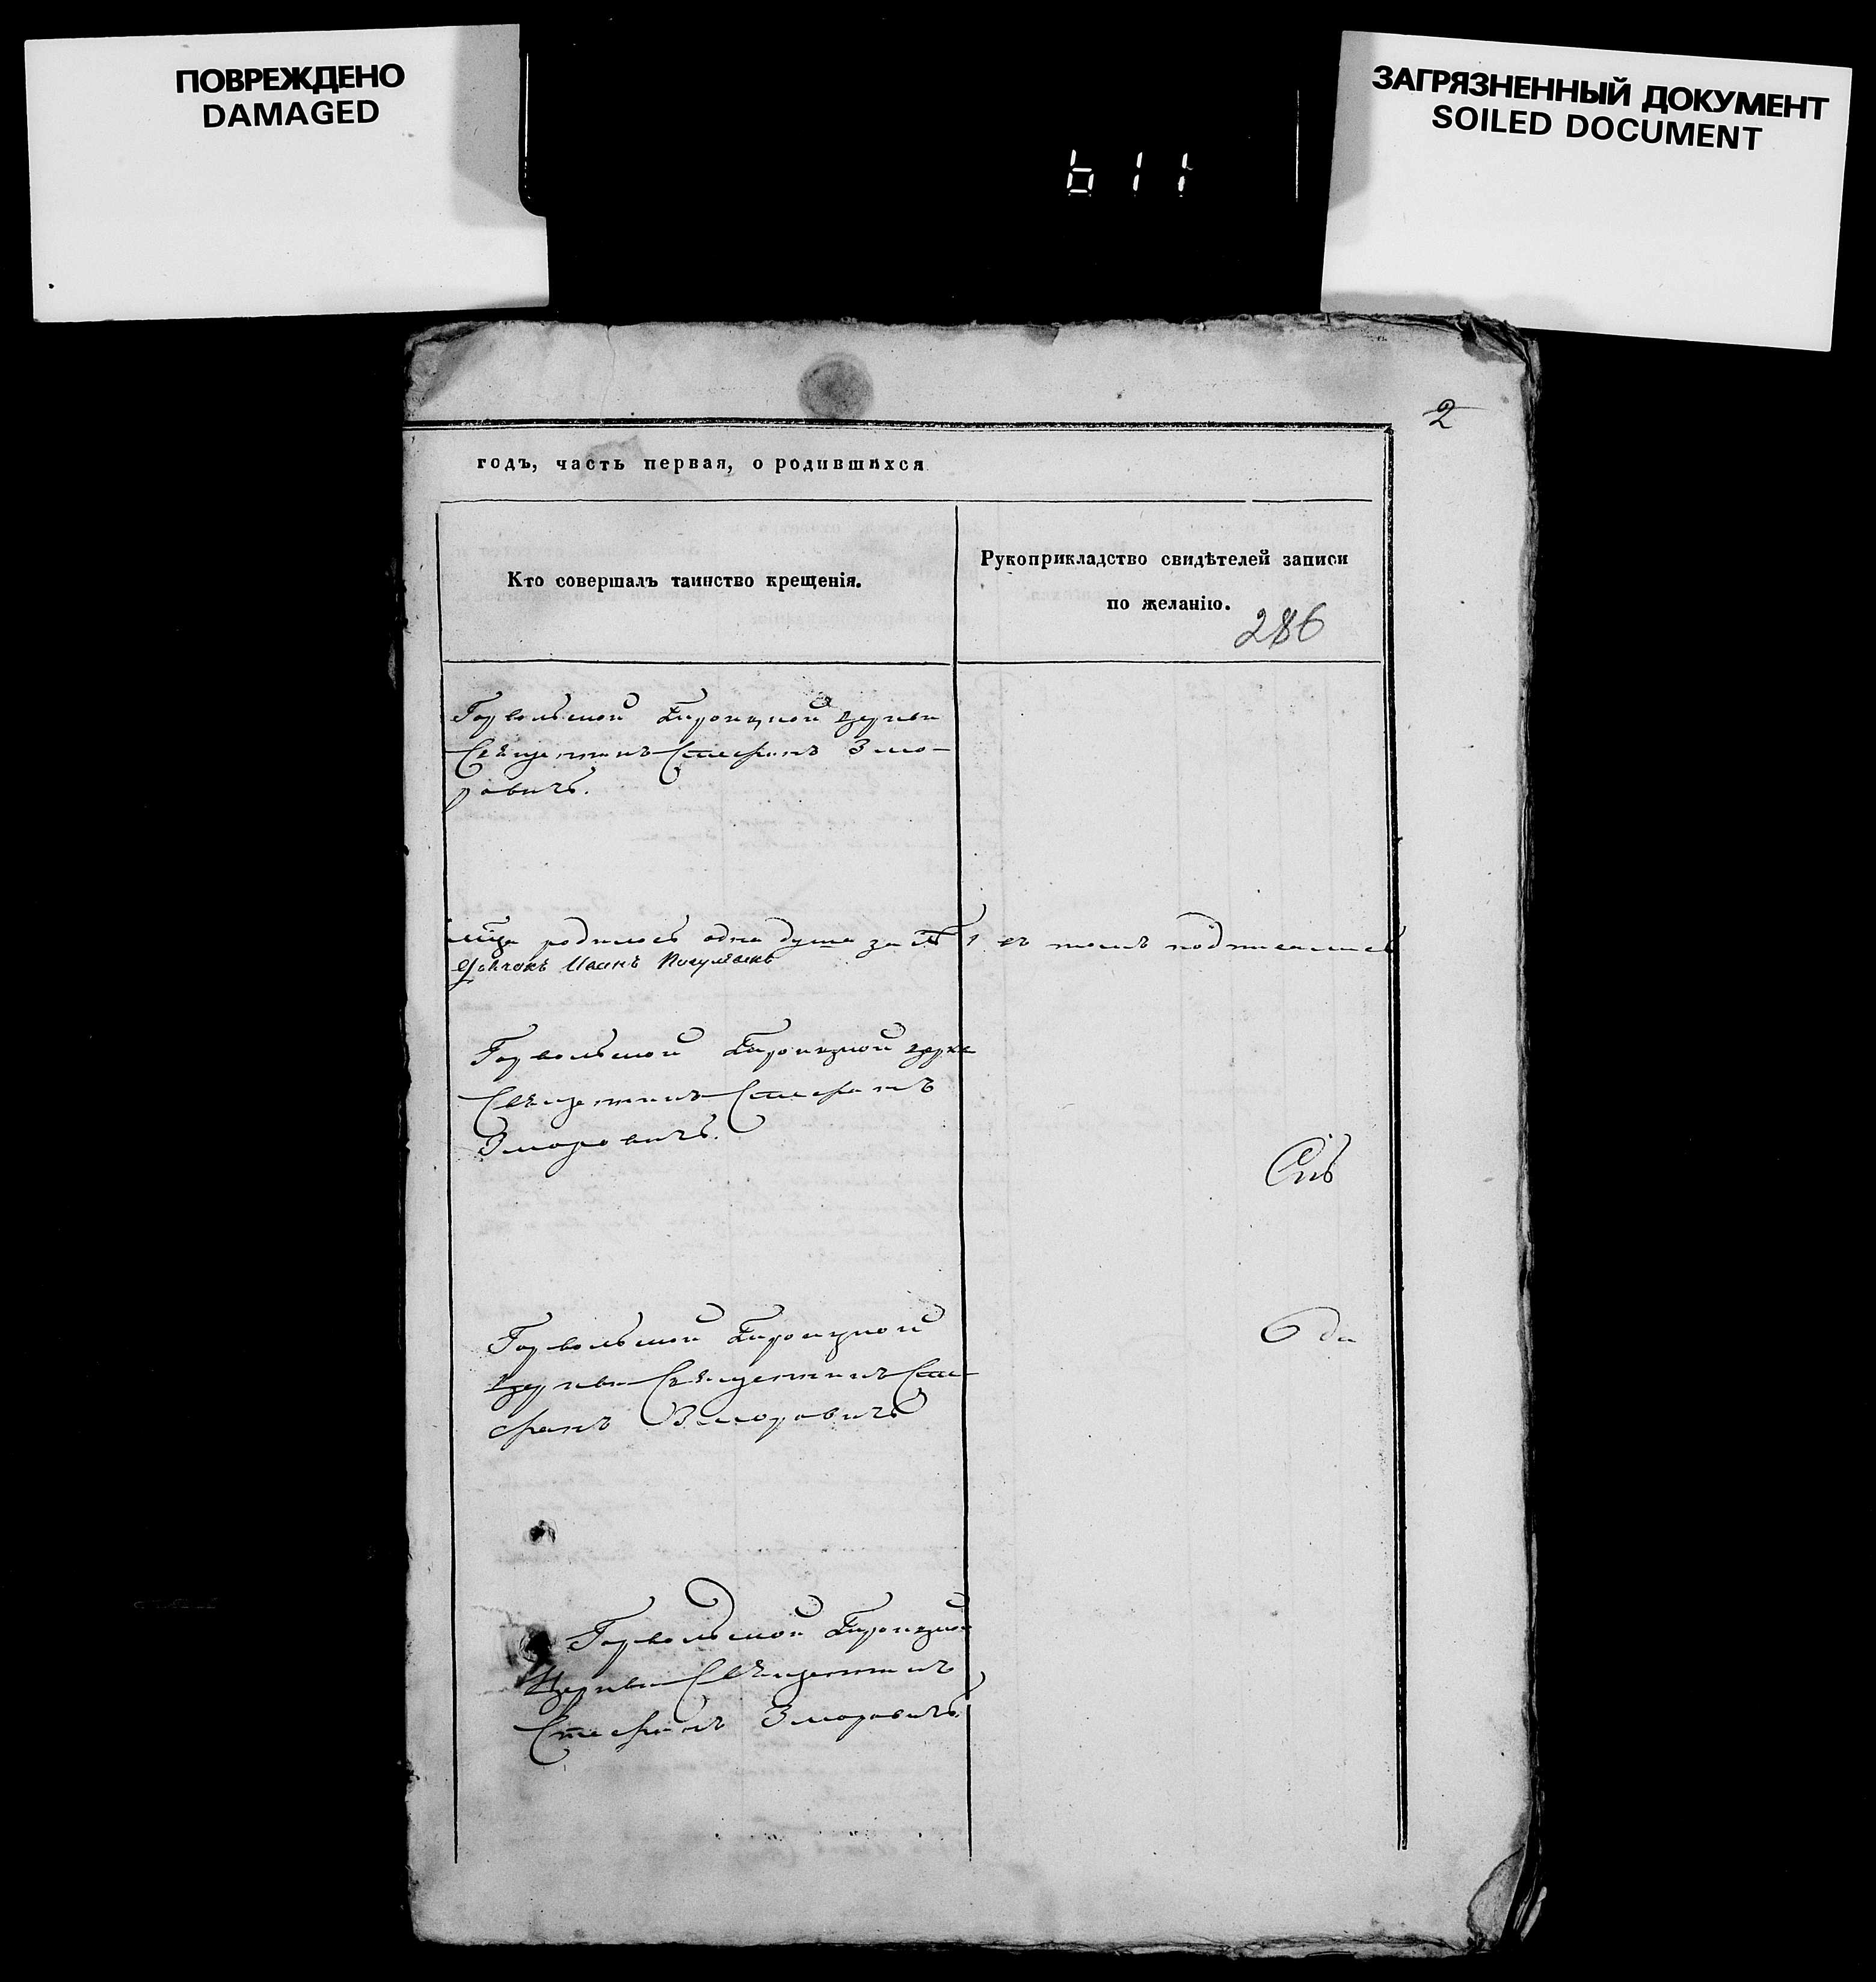 ПОВРЕЖДЕНО
DAMAGED
ЗАГРЯЗНЕННЫЙ ДОКУМЕНТ
SOILED DOCUMENT
611
2
годъ, часть первая, о родившихся
Кто совершалъ таинство крещенія.
Рукоприкладство свидѣтелей записи
по желанію.
286
Горвольской Троицкой церкви
Священникъ Стефанъ Змо-
ровичъ.
родилось одна душа за № 1 въ томъ подписались
Иванъ
Горвольской Троицкой церкви
Священникъ Стефанъ
Зморовичъ.
Горвольской Троицкой
церкви Священникъ Сте-
фанъ Зморовичъ
Горвольской Троицкой
Церкви Священникъ
Стефанъ Зморовичъ.